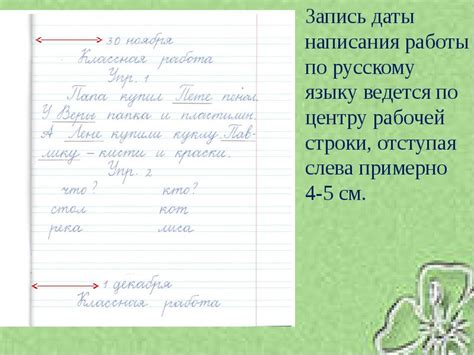 30 ноября
Классная работа
Упр. 1
Папа купил Пете пенал.
У Веры папка и пластилин.
А Лене купили куклу. Пав-
лику – кисти и краски.
Упр. 2
что? кто?
стол кот
река лиса
1 декабря
Классная работа
Запись даты
написания работы
по русскому
языку ведется по
центру рабочей
строки, отступая
слева примерно
4-5 см.